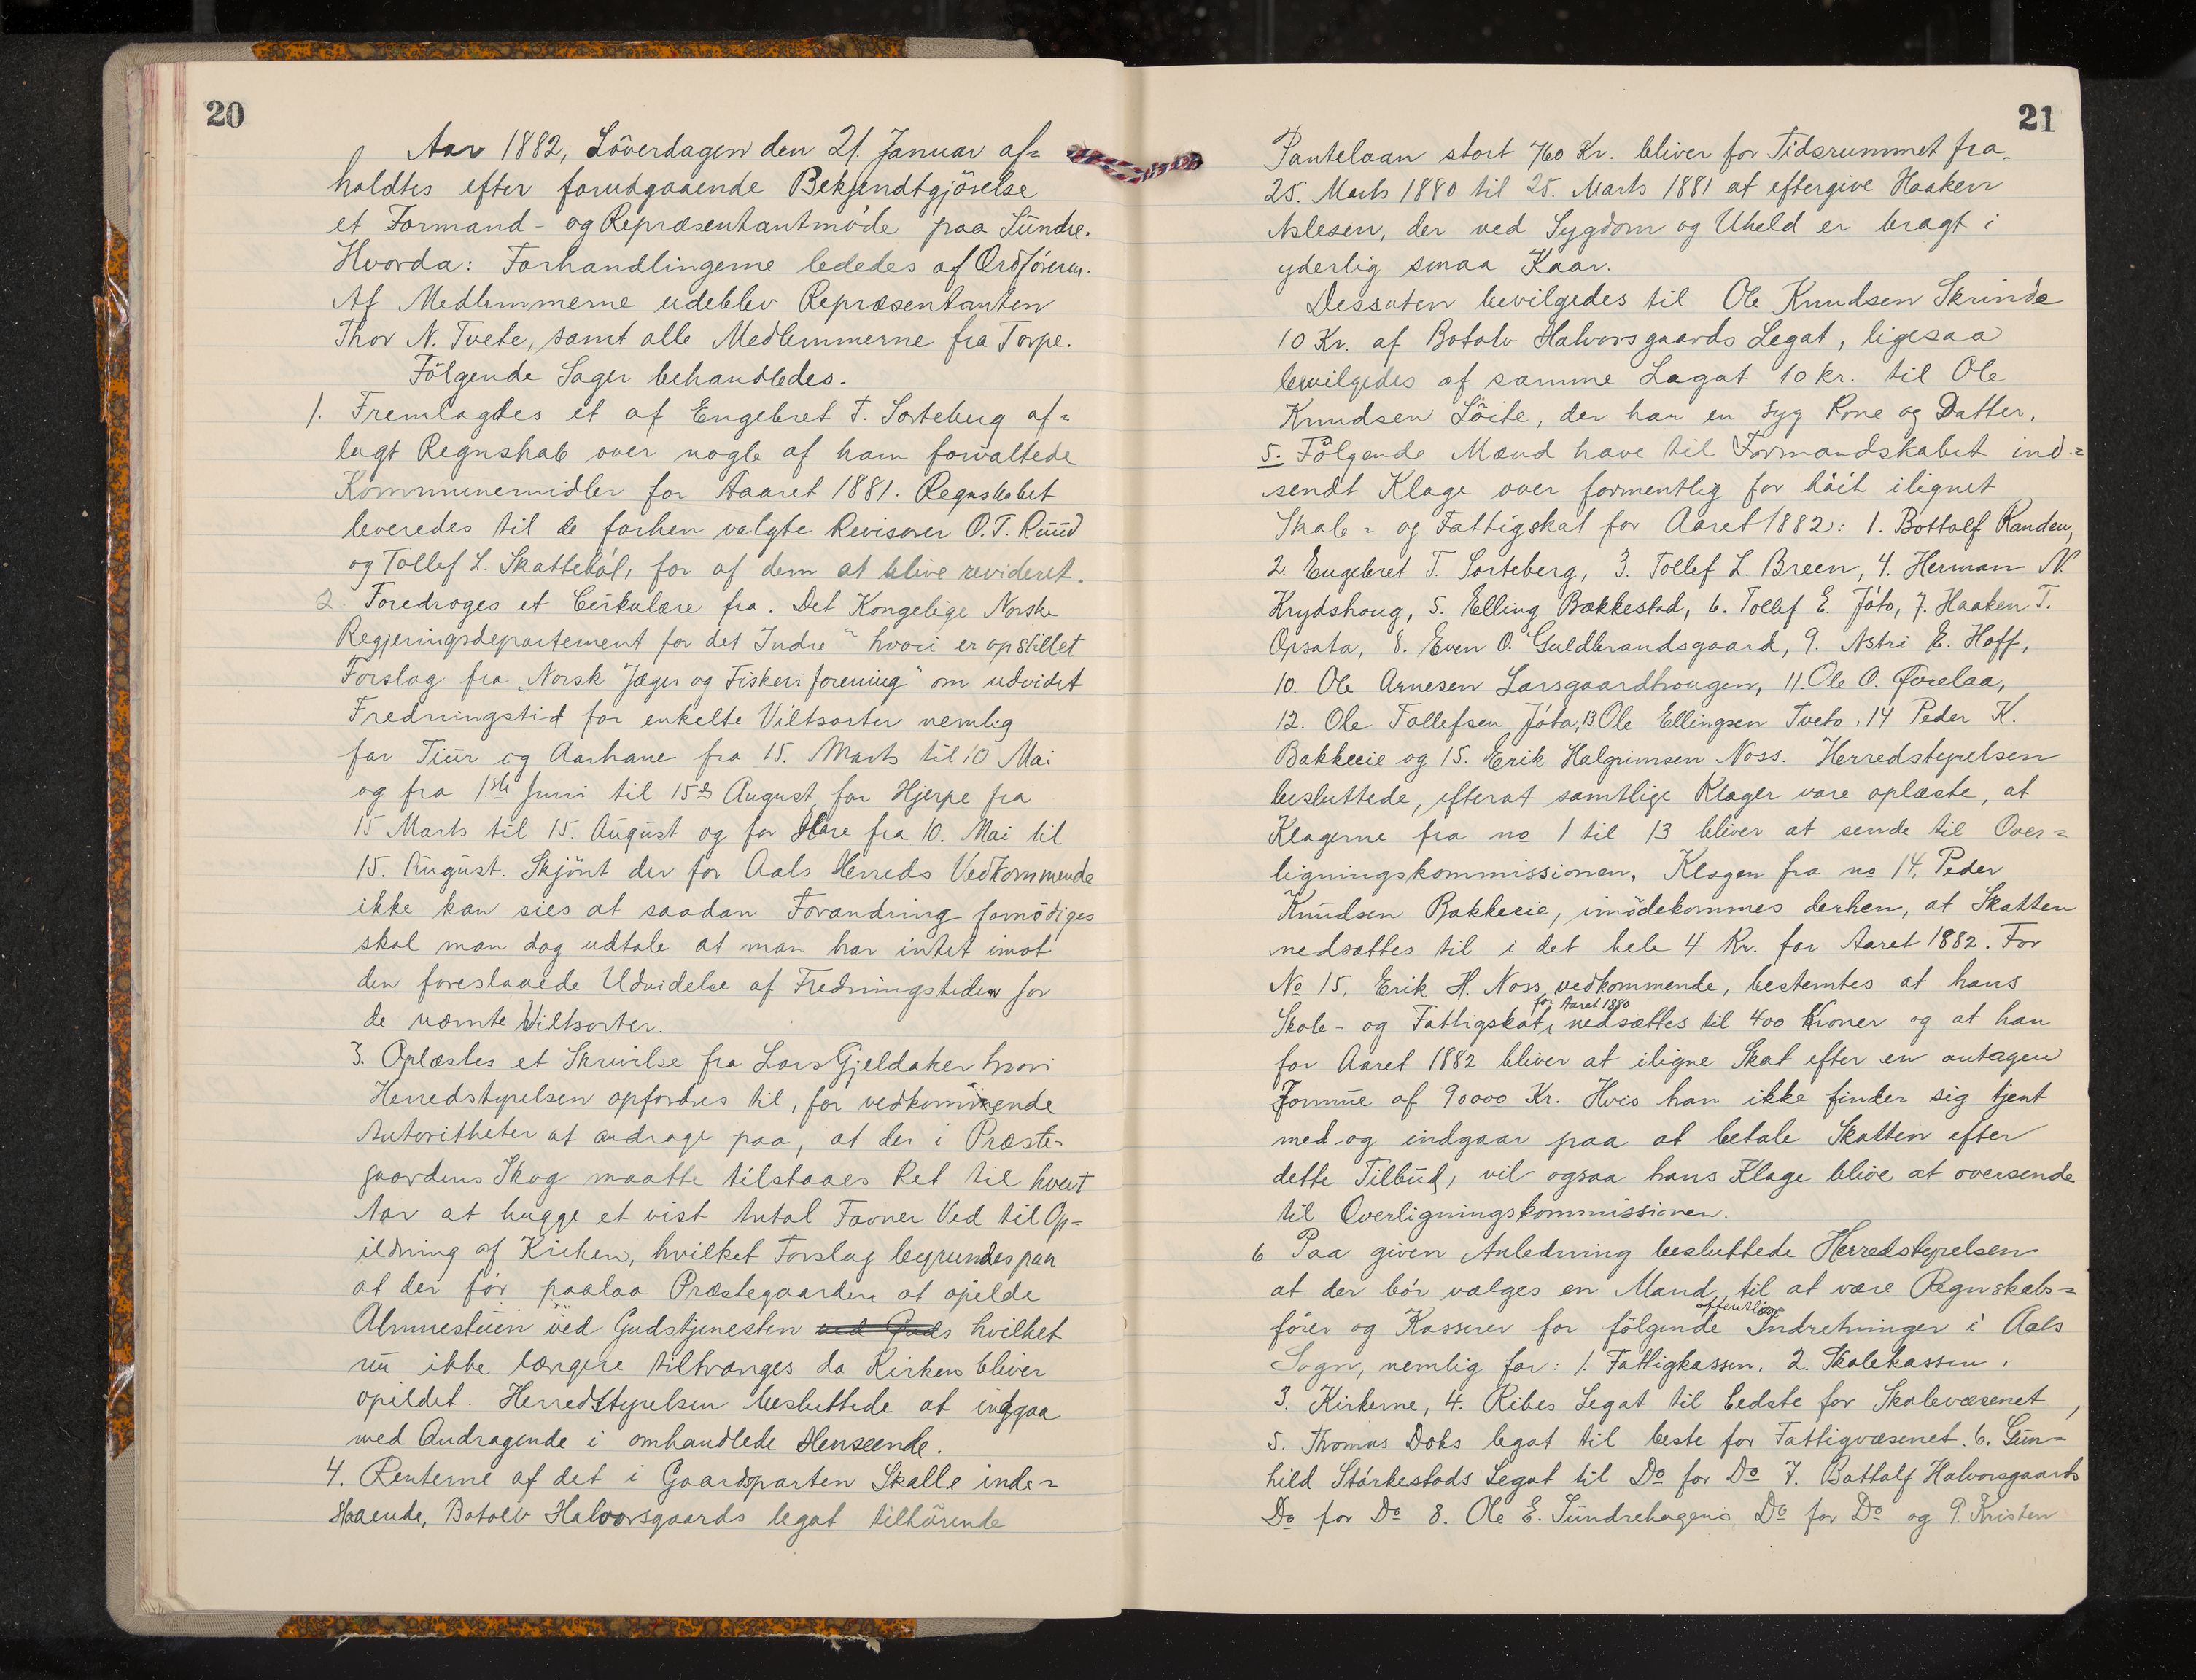 20
Aar 1882, Löverdagen den 21. Januar af=
holdtes efter forutgaaende Bekjendtgjörelse
et Formand- og Repræsentantmöde paa Sundre.
Hvorda: Forhandlingerne lededes af Ordföreren.
Af Medlemmerne udeblev Repræsentanten
Thor N. Tvete, samt alle Medlemmerne fra Torpe.
Fölgende Sager behandledes.
1. Fremlagdes et af Engebret T. Sorteberg af=
lagt Regnskab over nogle af ham forvaltede
Kommunemidler for Aaaret 1881. Regnskabet
leveredes til de forhen valgte Revisorer O. T. Ruud
og Tollef L. Skatteböl, for af dem at blive revideret.
2. Foredroges et Cirkulære fra. Det Kongelige Norske
Regjeringsdepartement for det Indre" hvori er opstillet
Forslag fra „Norsk Jæger og Fiskeriforening" om udvidet
Fredningstid for enkelte Viltsorter nemlig
for Tiur og Aarhane fra 15. Marts til 10 Mai
og fra 1ste Juni til 15de August, for Hjerpe fra
15 Marts til 15. August og for Hare fra 10. Mai til
15. August. Skjönt der for Aals Herreds Vedkommende
ikke kan sies at saadan Forandring fornödiges
skal man dog udtale at man har intet imot
den foreslaaede Udvidelse af Fredningstiden for
de nævnte Viltsorter.
3. Oplæstes et Skrivelse fra Lars Gjeldaker hvori
Herredstyrelsen opfordres til, for vedkommende
Autoritheter at andrage paa, at der i Præste-
gaardens Skog maatte tilstaaes Ret til hvert
Aar at hugge et vist Antal Favner Ved til Op=
ildning af Kirken, hvilket Forslag begrundes paa
at der för paalaa Præstegaarden at opilde
Almuestuen ved Gudstjenesten ved Guds hvilket
nu ikke længere tiltrænges da Kirken bliver
opildet. Herredstyrelsen besluttede at indgaa
med Andragende i omhandlede Henseende.
4. Renterne af det i Gaardsparten Skalle inde=
staaende, Botolv Halvorsgaards legat tilhörende
21
Pantelaan stort 760 Kr. bliver for Tidsrummet fra
25. Marts 1880 til 25. Marts 1881 at eftergive Haaken
Aslesen, der ved Sygdom og Uheld er bragt i
yderlig smaa Kaar.
Dessuten bevilgedes til Ole Knudsen Skrinde
10 Kr. af Botolv Halvorsgaards Legat, ligesaa
bevilgedes af samme Legat 10 kr. til Ole
Knudsen Löite, der har en syg Kone og Datter.
5. Fölgende Mænd have til Formandskabet ind=
sendt Klage over formentlig for höit ilignet
Skole= og Fattigskat for Aaret 1882: 1. Bottolf Randen,
2. Engebret T. Sorteberg, 3. Tollef L. Breen, 4. Herman N.
Krydshoug, 5. Elling Bakkestad, 6. Tollef E. Jöto, 7. Haaken T.
Opsata, 8. Even O. Guldbrandsgaard, 9. Astri E. Hoff,
10. Ole Arnesen Larsgaardhougen, 11. Ole O. Qvelaa,
12. Ole Tollefsen Jöto, 13. Ole Ellingsen Tveto, 14 Peder K.
Bakkeeie og 15. Erik Halgrimsen Noss. Herredstyrelsen
besluttede, efterat samtlige Klager vare oplæste, at
Klagerne fra no 1 til 13 bliver at sende til Over=
ligningskommissionen, Klagen fra no 14, Peder
Knudsen Bakkeeie, imödekommes derhen, at Skatten
nedsættes til i det hele 4 Kr. for Aaret 1882. For
No 15, Erik H. Noss vedkommende, bestemtes at hans
Skole- og Fattigskat for Aaret 1880 nedsættes til 400 Kroner og at han
for Aaret 1882 bliver at iligne Skat efter en antagen
Formue af 90000 Kr. Hvis han ikke finder sig tjent
med og indgaar paa at betale Skatten efter
dette Tilbud, vil ogsaa hans Klage blive at oversende
til Overligningskommissionen.
6 Paa given Anledning besluttede Herredstyrelsen
at der bör vælges en Mand til at være Regnskabs=
förer og Kasserer for fölgende offentlige Indretninger i Aals
Sogn, nemlig for: 1. Fattigkassen, 2. Skolekassen,
3. Kirkerne, 4. Ribes Legat til bedste for Skolevæsenet,
5. Thomas Doks legat til beste for Fattigvæsenet. 6. Gun=
hild Störkestads Legat til Do for Do 7. Bottolf Halvorsgaards
Do for Do 8. Ole E. Sundrehagens Do for Do og 9. Kristen